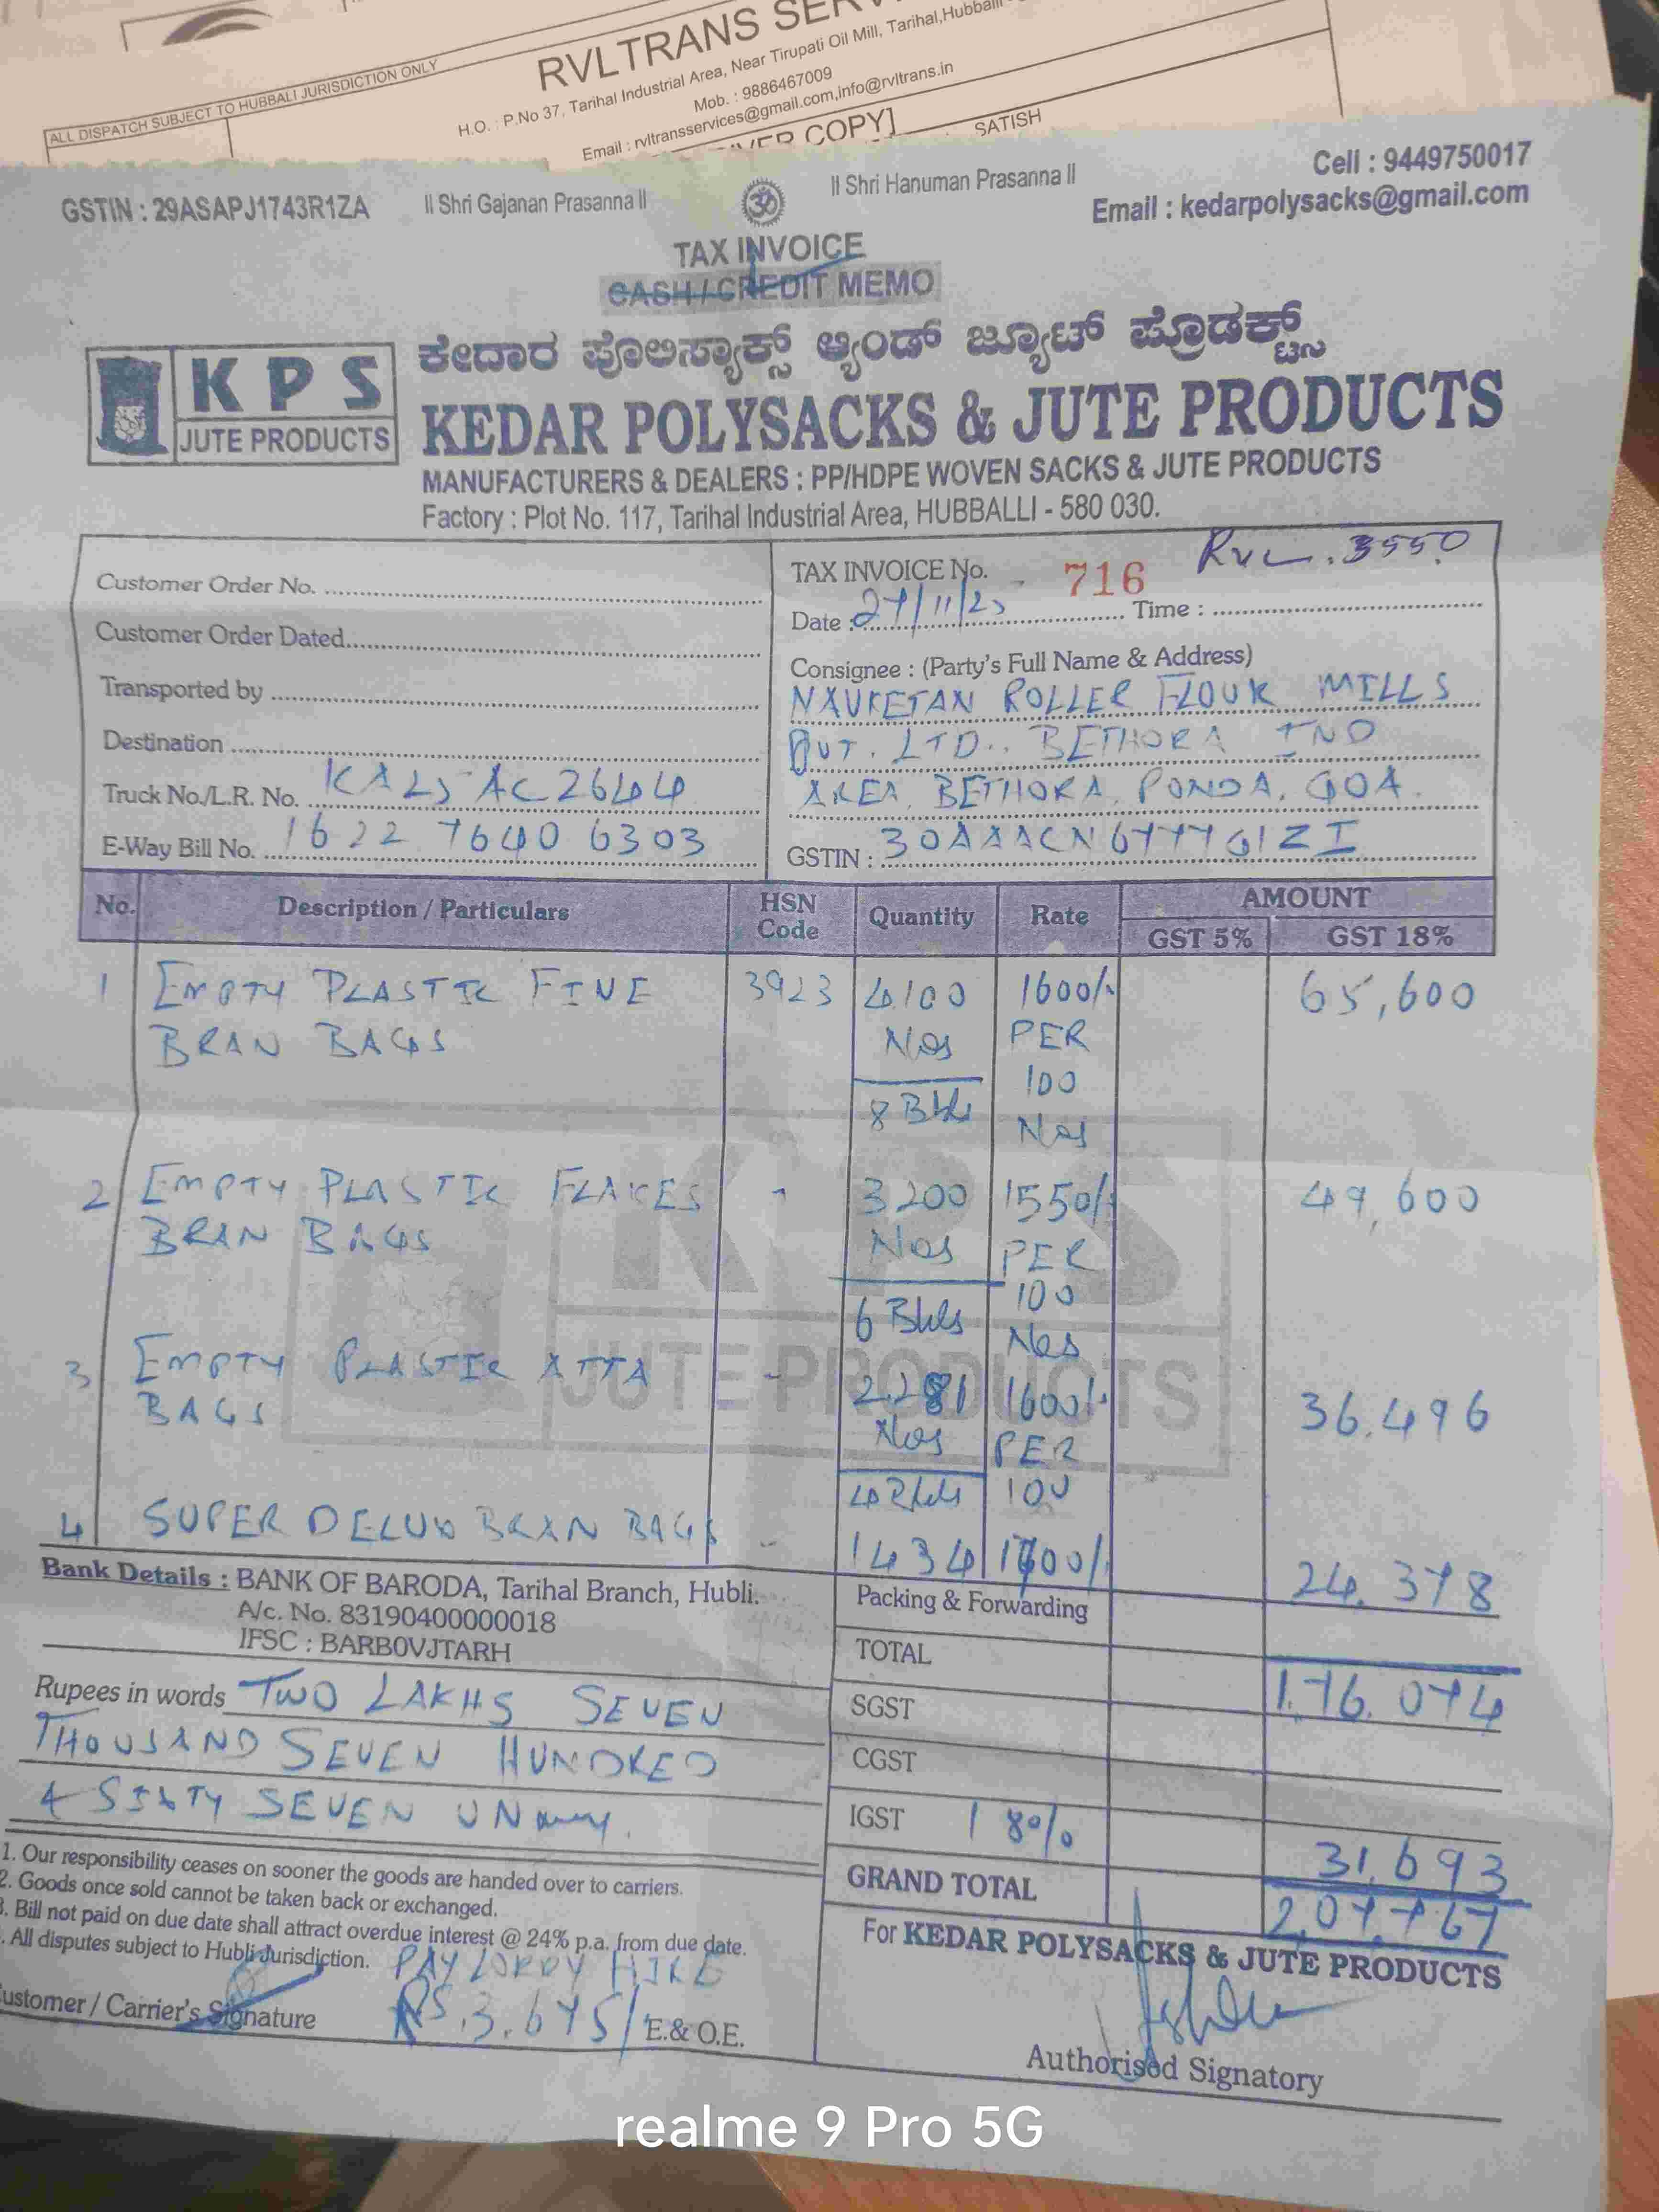 RVLTRANS
ALL DISPATCH SUBJECT TO HUBBALI JURISDICTION ONLY
H.O. : P.No 37, Tarihal Industrial Area, Near Tirupati Oil Mill, Tarihal,Hubballi
Mob. : 9886467009
Email : rvltransservices@gmail.com,info@rvltrans.in
COPY]
SATISH
GSTIN : 29ASAPJ1743R1ZA
ll Shri Gajanan Prasanna ll
ॐ
ll Shri Hanuman Prasanna ll
Cell : 9449750017
Email : kedarpolysacks@gmail.com
TAX INVOICE
CASH / CREDIT MEMO
KPS
JUTE PRODUCTS
ಕೇದಾರ ಪೊಲಿಸ್ಯಾಕ್ಸ್ ಆ್ಯಂಡ್ ಜ್ಯೂಟ್ ಪ್ರೊಡಕ್ಟ್ಸ್
KEDAR POLYSACKS & JUTE PRODUCTS
MANUFACTURERS & DEALERS : PP/HDPE WOVEN SACKS & JUTE PRODUCTS
Factory : Plot No. 117, Tarihal Industrial Area, HUBBALLI - 580 030.
Customer Order No.
Customer Order Dated
Transported by
Destination
Truck No./L.R. No. KA25 AC2644
E-Way Bill No. 1622 7640 6303
TAX INVOICE No. 716 RVL. 3550
Date : 27/11/23 Time :
Consignee : (Party's Full Name & Address)
NAVKETAN ROLLER FLOUR MILLS
PVT. LTD.. BETHORA IND
AREA, BETHORA, PONDA, GOA.
GSTIN : 30AAACN6777G1ZI
No. Description / Particulars HSN Code Quantity Rate AMOUNT
GST 5% GST 18%
1 EMPTY PLASTIC FINE 3923 4100 1600/- 65,600
BRAN BAGS Nos PER
100
8 Bdls Nos
2 EMPTY PLASTIC FLAKES 3200 1550/- 49,600
BRAN BAGS Nos PER
100
6 Bdls Nos
3 EMPTY PLASTIC ATTA 2.281 1600/- 36.496
BAGS Nos PER
4 Bdls 100
4 SUPER DELUX BRAN BAGS 1434 1700/- 24.378
KPS
JUTE PRODUCTS
Bank Details : BANK OF BARODA, Tarihal Branch, Hubli.
A/c. No. 83190400000018
IFSC : BARB0VJTARH
Packing & Forwarding
TOTAL 1.76.074
SGST
CGST
IGST 18% 31,693
GRAND TOTAL 2,07.767
Rupees in words TWO LAKHS SEVEN
THOUSAND SEVEN HUNDRED
& SIXTY SEVEN
1. Our responsibility ceases on sooner the goods are handed over to carriers.
2. Goods once sold cannot be taken back or exchanged.
. Bill not paid on due date shall attract overdue interest @ 24% p.a. from due date.
. All disputes subject to Hubli Jurisdiction.
PAY LORRY HIRE
RS.3.675/
ustomer / Carrier's Signature
E.& O.E.
For KEDAR POLYSACKS & JUTE PRODUCTS
Authorised Signatory
realme 9 Pro 5G